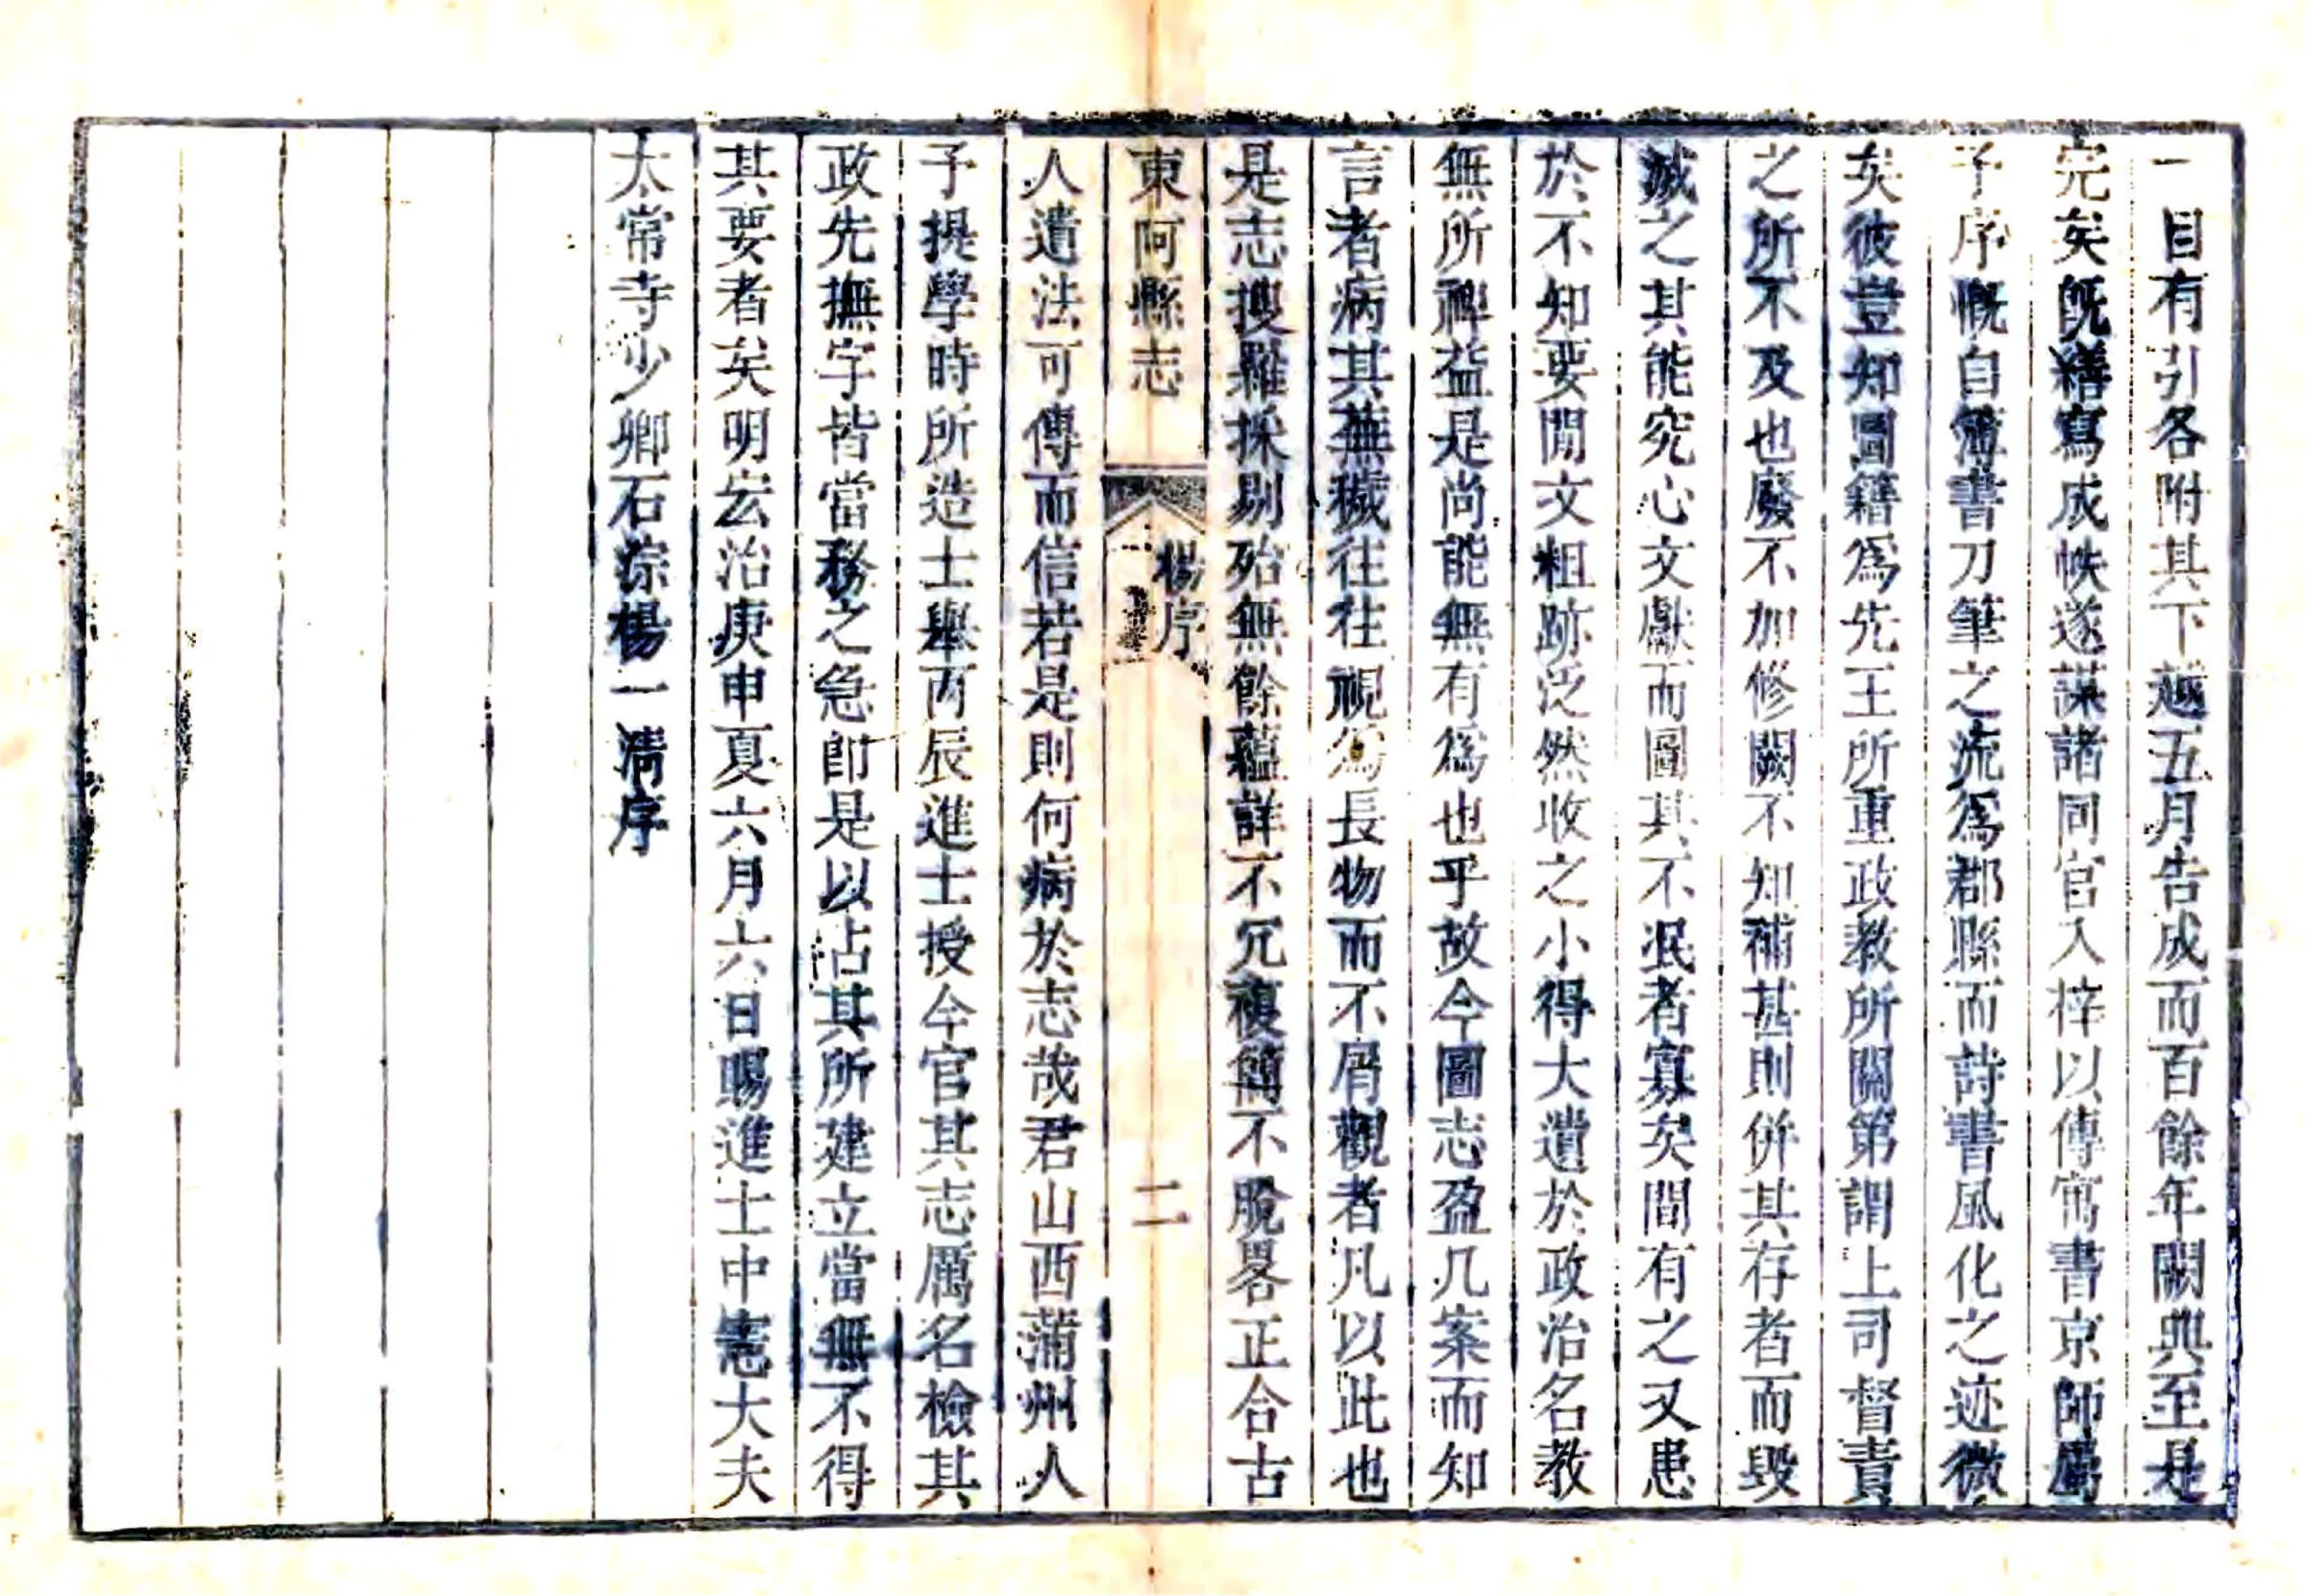 一目有引各附其下越五月告成而百餘年闕典至是
完矣既繕寫成帙遂謀諸同官入梓以傳寓書京師屬
予序慨自簿書刀筆之流為郡縣而詩書風化之迹微
矣彼豈知圖籍為先王所重政教所關第謂上司督責
之所不及也廢不加修闕不知補甚則併其存者而毀
滅之其能究心文獻而圖其不泯者寡矣間有之又患
於不知要閒文粗跡泛然收之小得大遺於政治名教
無所裨益是尚能無有為也乎故今圖志盈几案而知
言者病其蕪穢往往視為長物而不屑觀者凡以此也
是志搜羅採剔殆無餘蘊詳不冗複簡不脫畧正合古
東阿縣志 楊序 二
人遺法可傳而信若是則何病於志哉君山西蒲州人
予提學時所造士舉丙辰進士授今官其志厲名檢其
政先撫字皆當務之急即是以占其所建立當無不得
其要者矣明宏治庚申夏六月六日賜進士中憲大夫
太常寺少卿石淙楊一清序